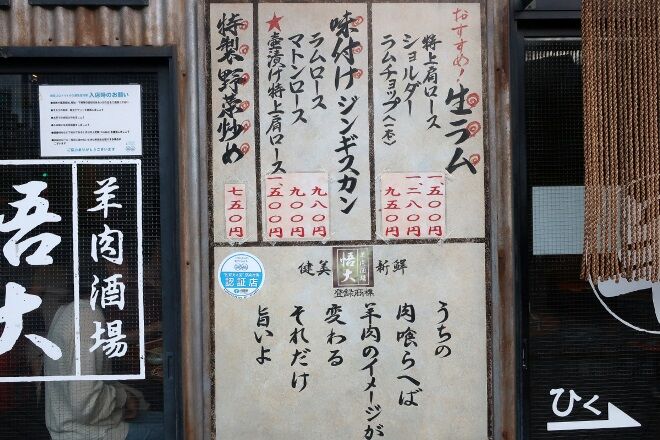 おすすめ!
生ラム
特上肩ロース 一、五〇〇円
ショルダー 一、二八〇円
ラムチョップ(一本) 九五〇円
味付けジンギスカン
ラムロース 九八〇円
マトンロース 九〇〇円
★壺漬け特上肩ロース 一、五〇〇円
特製野菜炒め 七五〇円
入店時のお願い
ご協力ありがとうございます
羊肉酒場
悟大
認証店
健美
悟大
新鮮
登録商標
うちの
肉喰らへば
羊肉のイメージが
変わる
それだけ
旨いよ
ひく